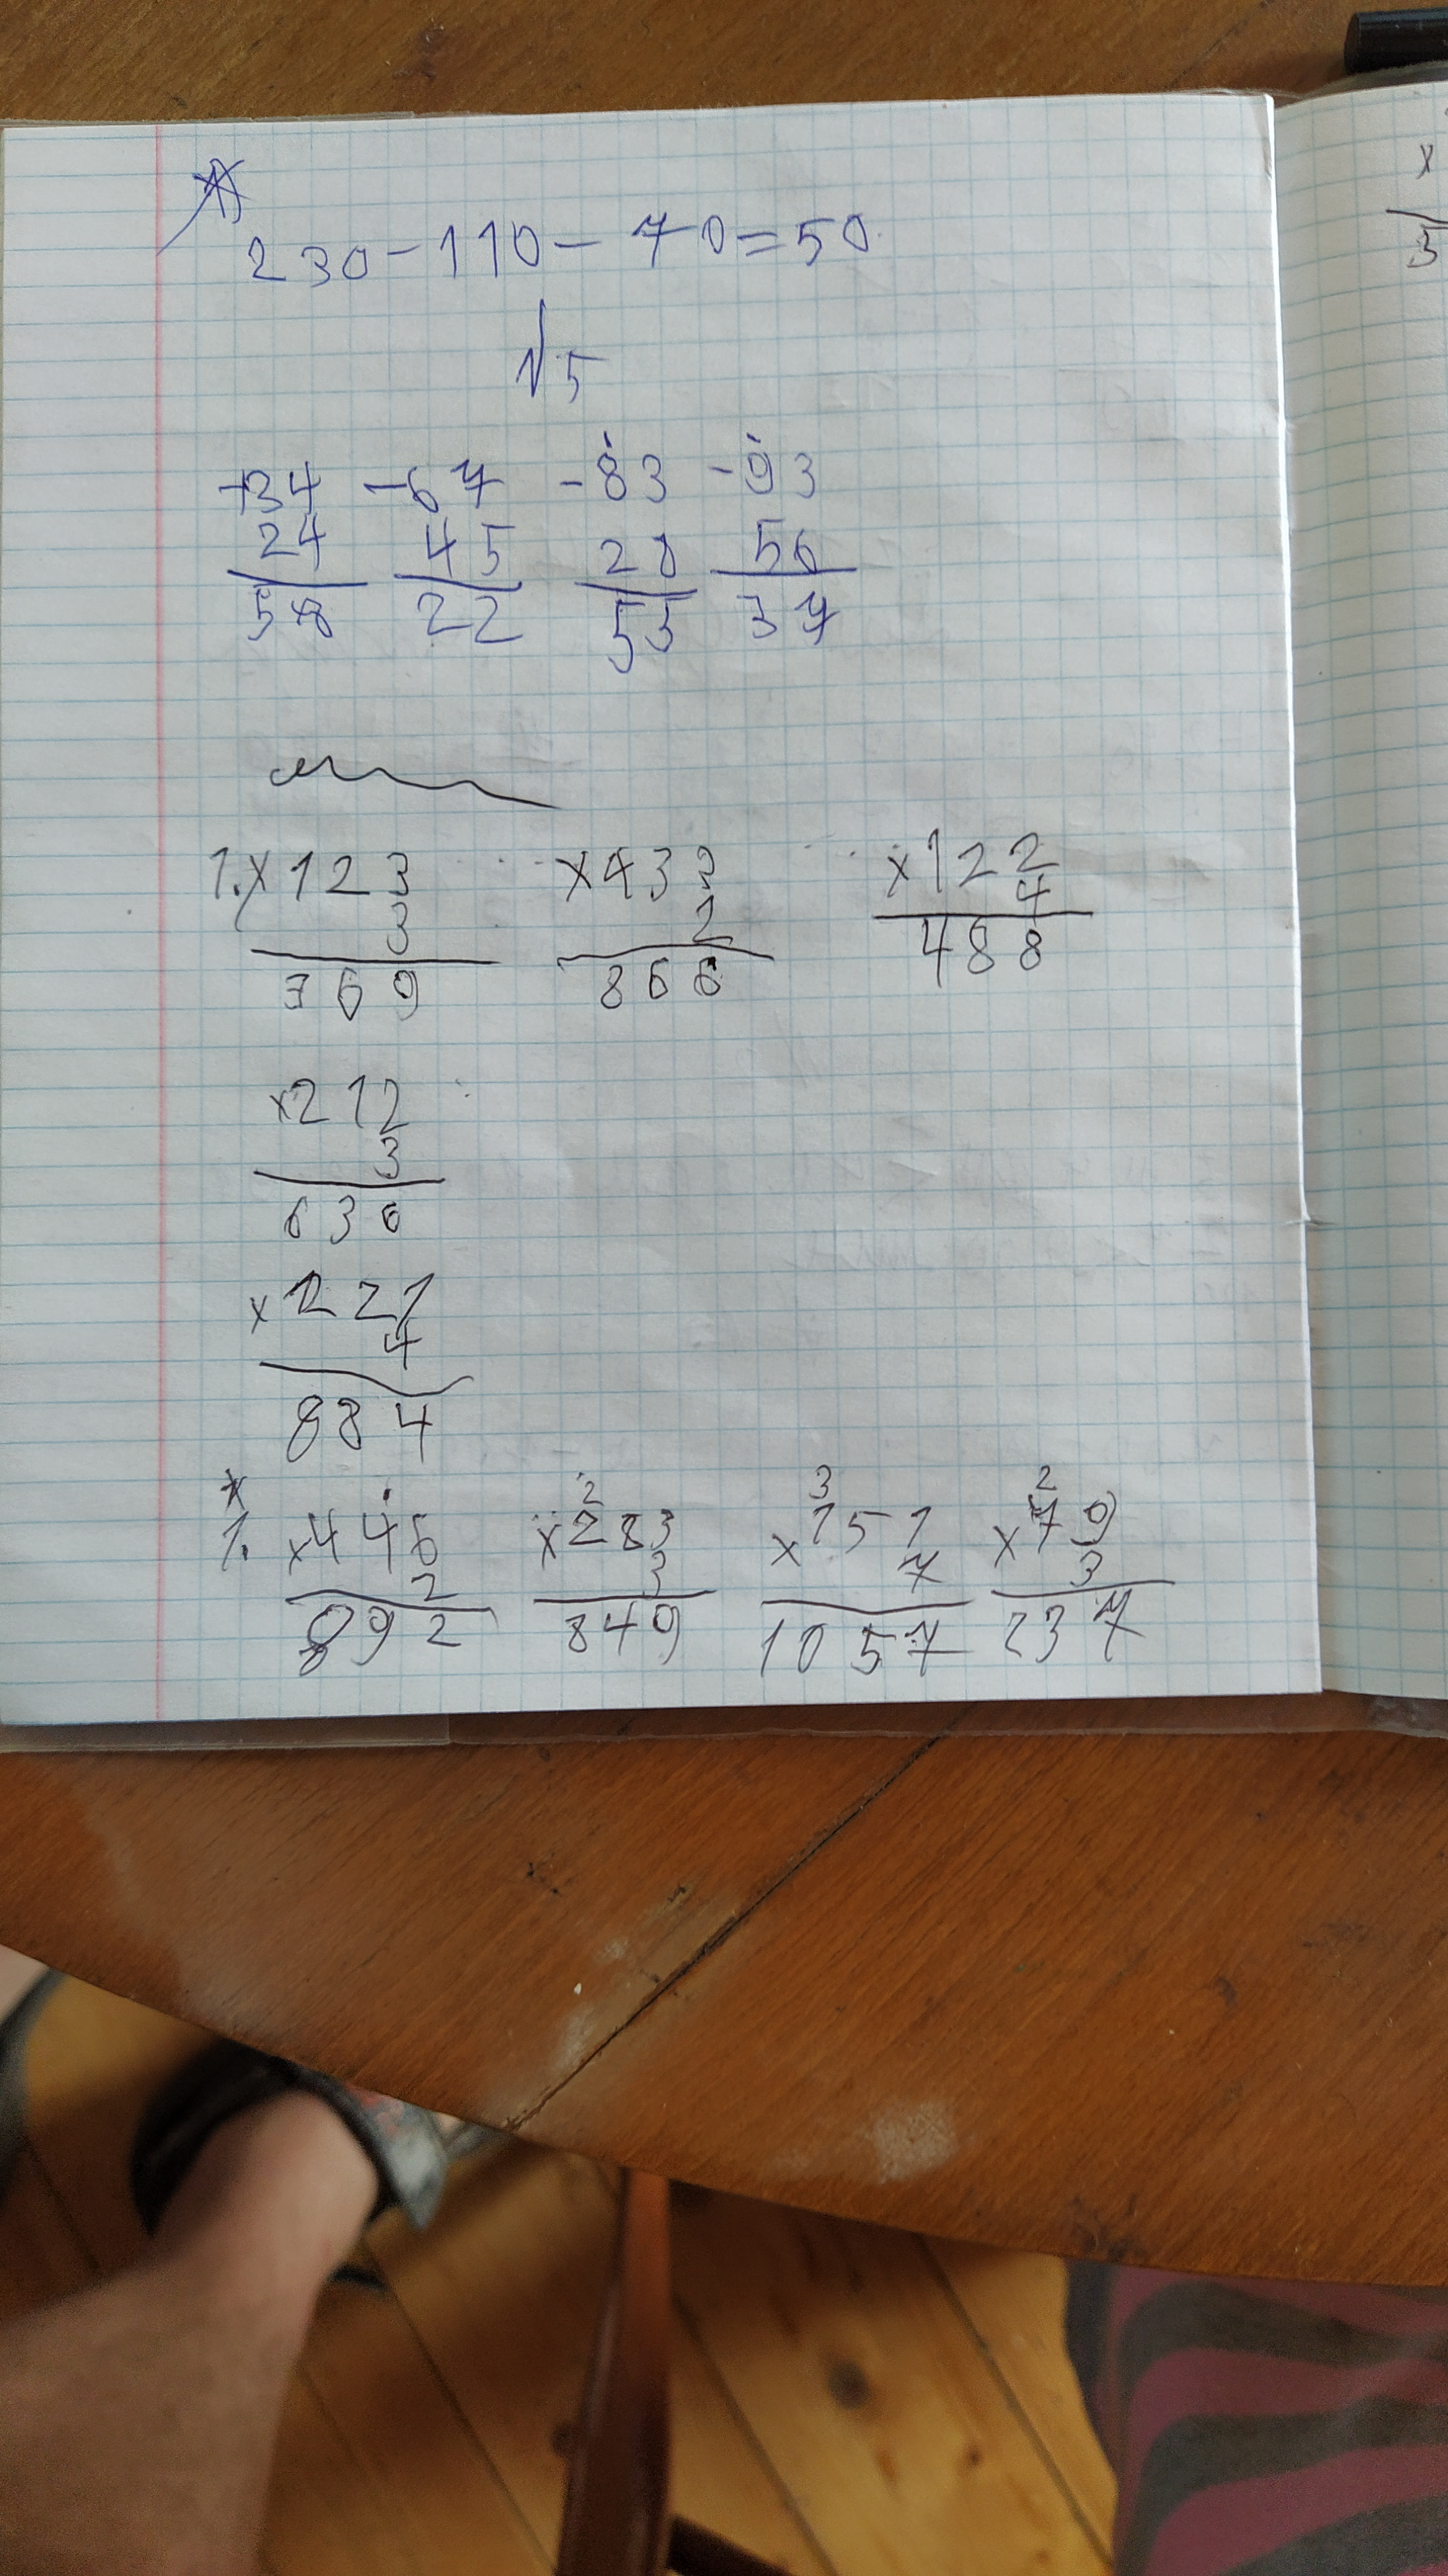 230-110-70=50
√5
+34 -67 -83 -93
24 45 28 56
58 22 55 37
1. x123 x433 x122
3 2 4
369 866 488
x212
3
636
x221
4
884
*
2 3 2
1. x446 x283 x151 x79
2 3 7 3
892 849 1057 237
x
5